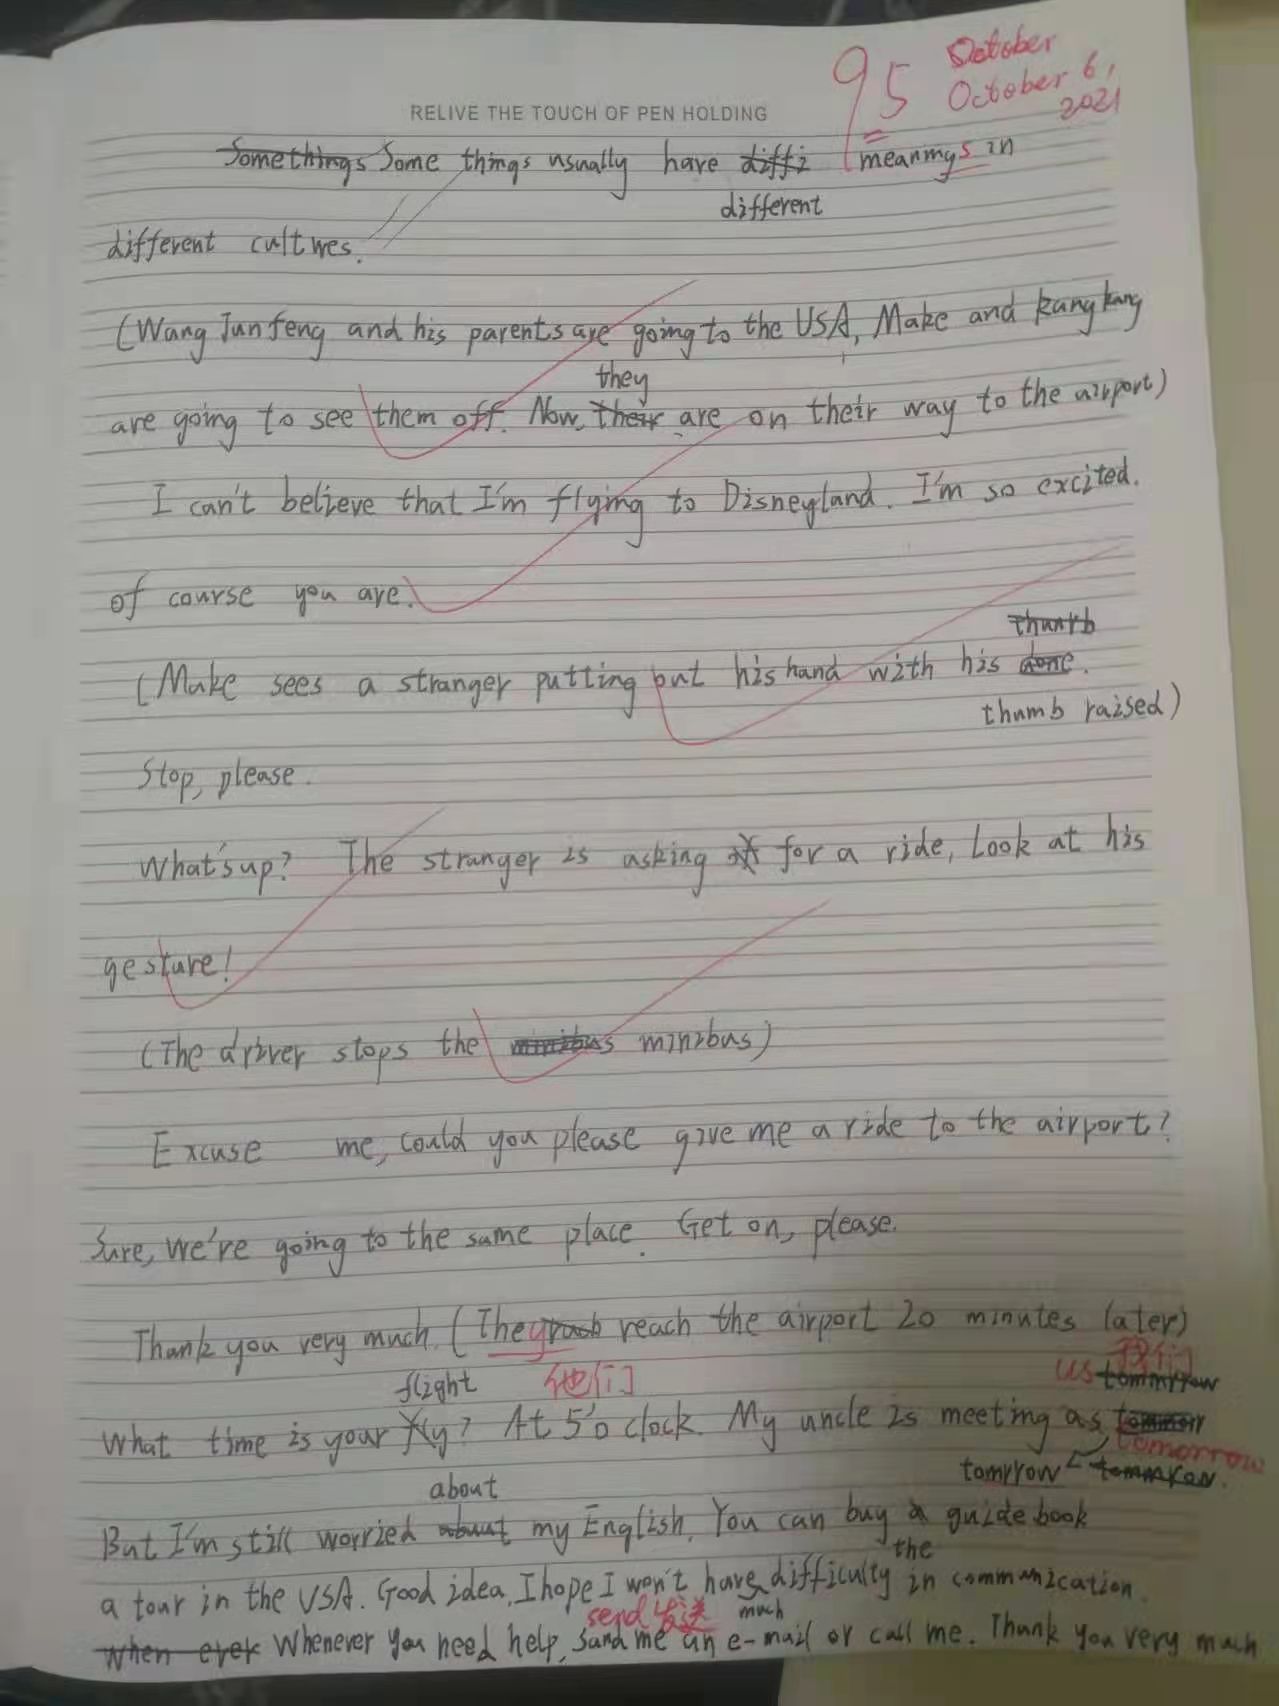 October
95 October 6,
2021
RELIVE THE TOUCH OF PEN HOLDING
Somethings Some things usually have diffi meanings in
different
different cultures.
(Wang Junfeng and his parents are going to the USA, Make and kangkang
they
are going to see them off. Now, their are on their way to the airport)
I can't believe that I'm flying to Disneyland. I'm so excited.
of course you are.
thumb
(Make sees a stranger putting out his hand with his done.
thumb raised)
Stop, please.
What's up? The stranger is asking for a ride, Look at his
gesture!
(The driver stops the minibus minibus)
Excuse me, could you please give me a ride to the airport?
Sure, we're going to the same place. Get on, please.
Thank you very much. (They reach the airport 20 minutes later)
flight 他们 us 我们 tommrrow
What time is your fly? At 5'o clock. My uncle is meeting as
tomorrow
about tomrrow
But I'm still worried about my English. You can buy a guide book
the
a tour in the USA. Good idea, I hope I won't have difficulty in communication.
send 发送 much
When ever Whenever you need help, Sand me an e-mail or call me. Thank you very much